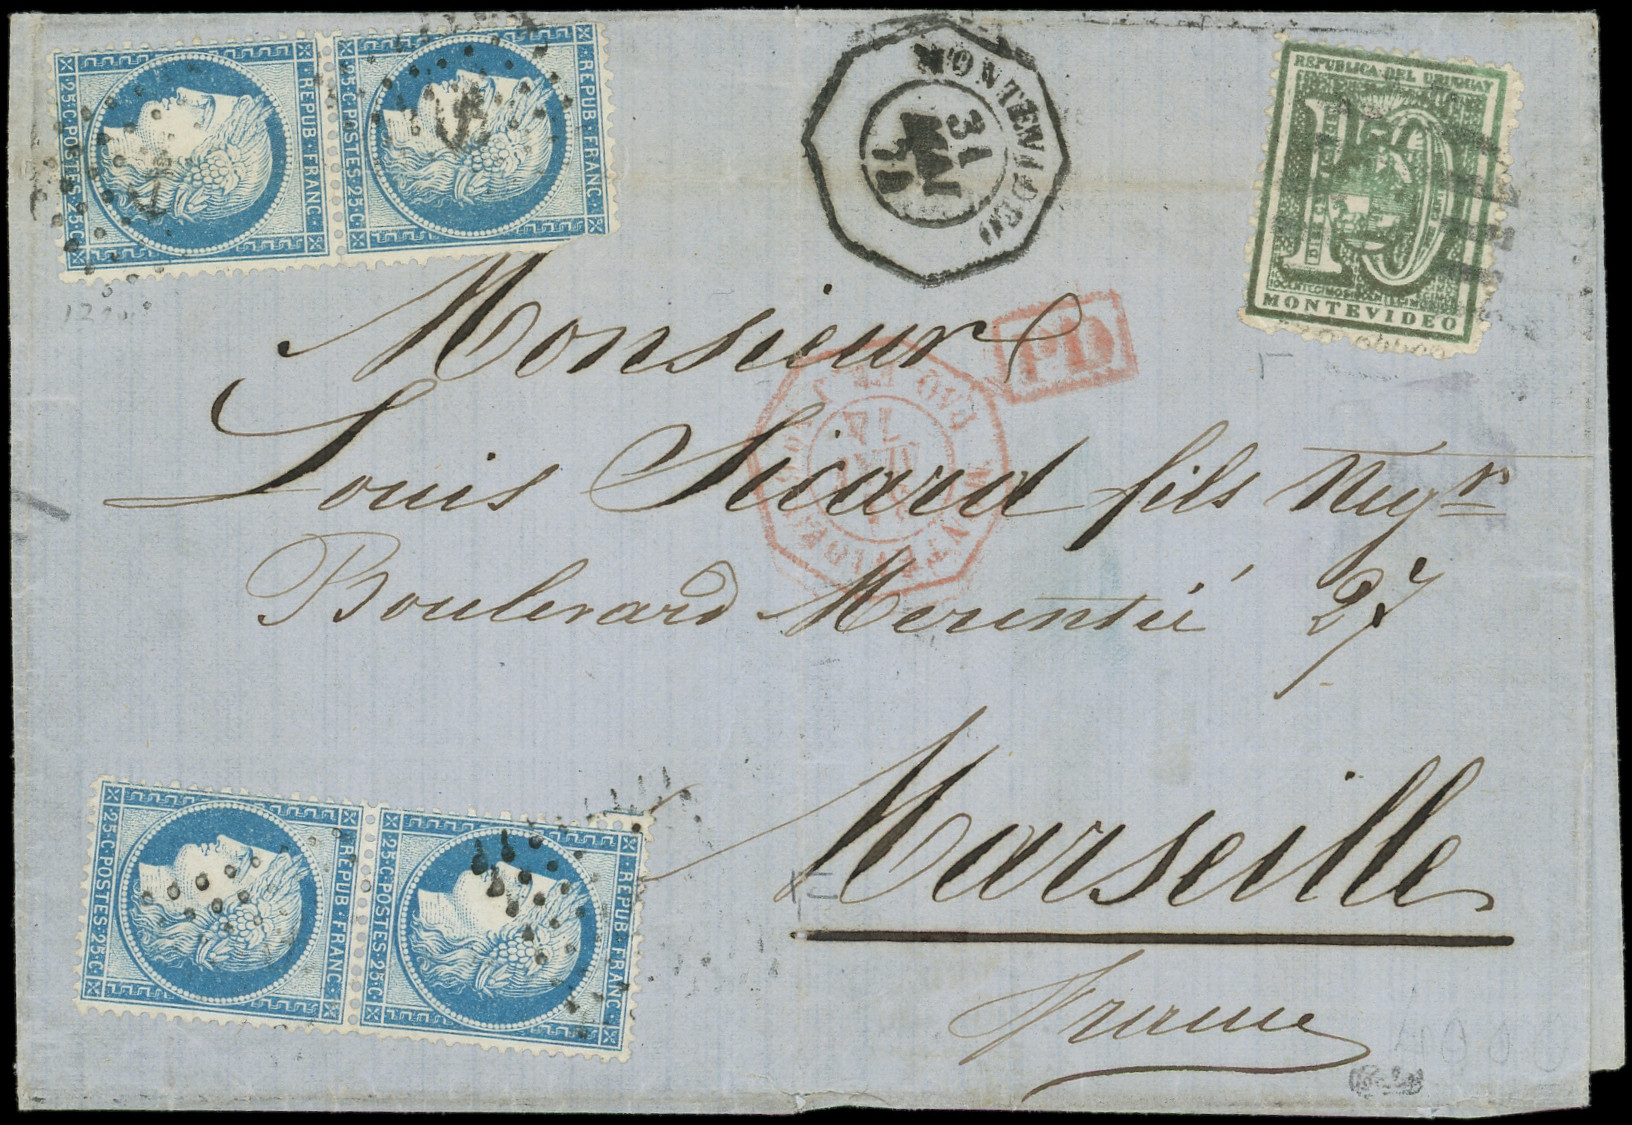 REPUB·FRANC·
25·C·POSTES·25·C
REPUB·FRANC·
25·C·POSTES·25·C
MONTEVIDEO
31
MAI
74
REPUBLICA DEL URUGUAY
10
MONTEVIDEO
PD
74
Monsieur
Louis Sicard fils Negr
Boulevard Merentié 27
Marseille
France
REPUB·FRANC·
25·C·POSTES·25·C
REPUB·FRANC·
25·C·POSTES·25·C